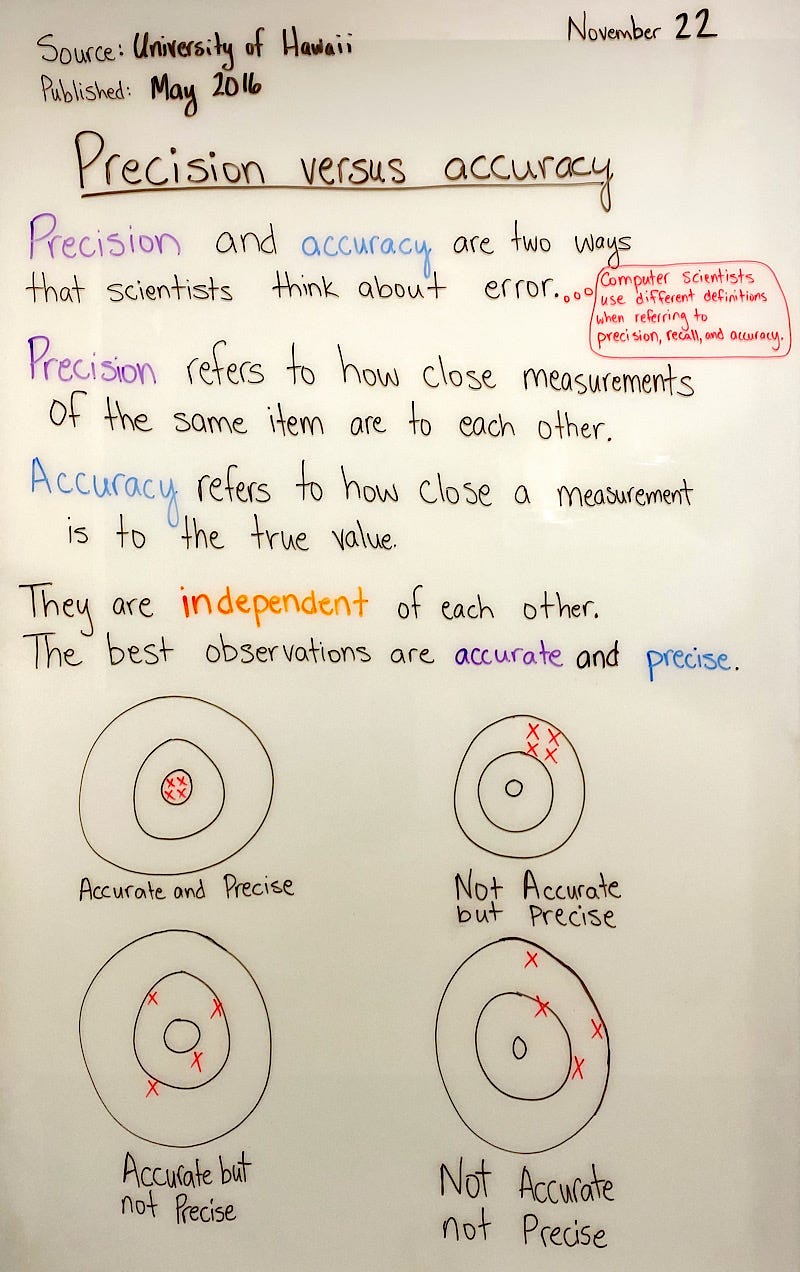 November 22
Source: University of Hawaii
Published: May 2016
Precision versus accuracy
Precision and accuracy are two ways
that scientists think about error.
Computer Scientists
use different definitions
when referring to
precision, recall, and accuracy.
Precision refers to how close measurements
of the same item are to each other.
Accuracy refers to how close a measurement
is to the true value.
They are independent of each other.
The best observations are accurate and precise.
Accurate and Precise
Not Accurate
but Precise
Accurate but
not Precise
Not Accurate
not Precise